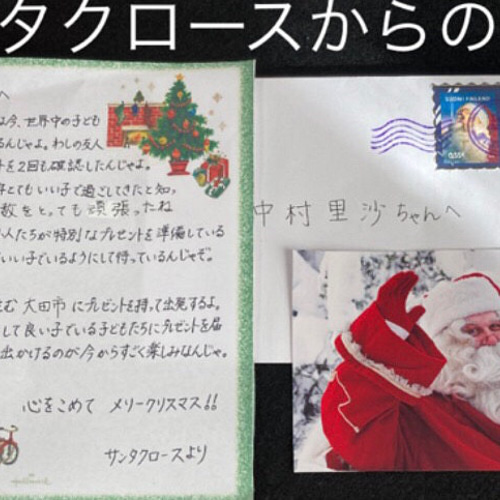 タクロースからの
へ
は今、世界中の子ども
るんじゃよ。わしの友人
トを2回も確認したんじゃよ。
年とてもいい子で過ごしてきたと知っ
数をとっても頑張ったね
人たちが特別なプレゼントを準備している
いい子でいるようにして待っているんじゃぞ。
む 大田市 にプレゼントを持って出発するよ。
して良い子でいる子どもたちにプレゼントを届
出かけるのが今からすごく楽しみなんじゃ。
心をこめて メリークリスマス!!
サンタクロースより
Hallmark
SUOMI FINLAND
0,55€
中村里沙ちゃんへ